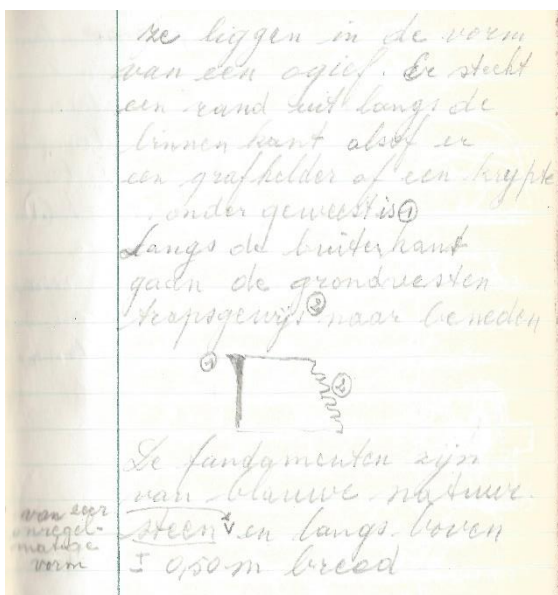 ze liggen in de vorm
van een ogief. Er steekt
een rand uit langs de
binnen kant alsof er
een grafkelder of een krypte
onder geweest is ①
Langs de buitenkant
gaan de grondvesten
trapsgewijs ② naar beneden
① ②
De fundamenten zijn
van blauwe natuur-
steen en langs boven
± 0,50 m breed
van een
onregel-
matige
vorm